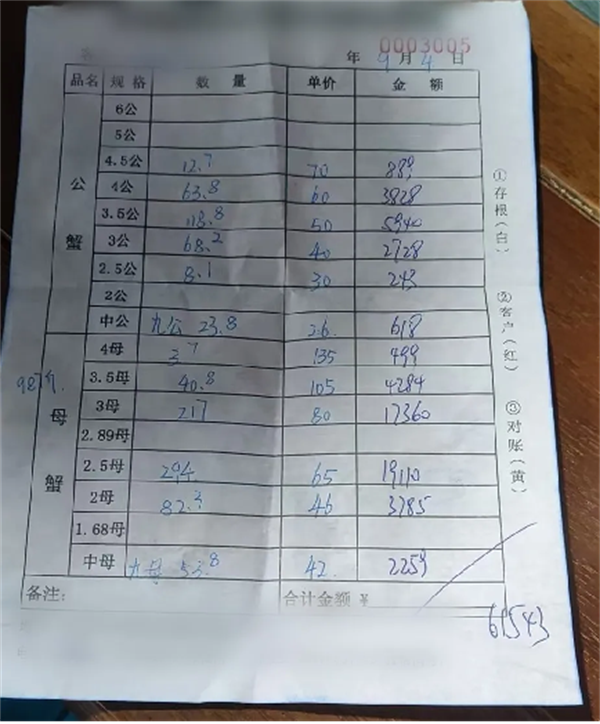 0003005
年 9 月 4 日
品名 规格 数量 单价 金额
公蟹
6公
5公
4.5公 12.7 70 889
4公 63.8 60 3828
3.5公 118.8 50 5940
3公 68.2 40 2728
2.5公 8.1 30 243
2公
中公 九公 23.8 26 618
母蟹
4母 3.7 135 499
3.5母 40.8 105 4284
3母 217 80 17360
2.89母
2.5母 294 65 19110
2母 82.3 46 3785
1.68母
中母 九母 53.8 42 2259
备注: 合计金额 ¥
61543
①存根(白)
②客户(红)
③对账(黄)